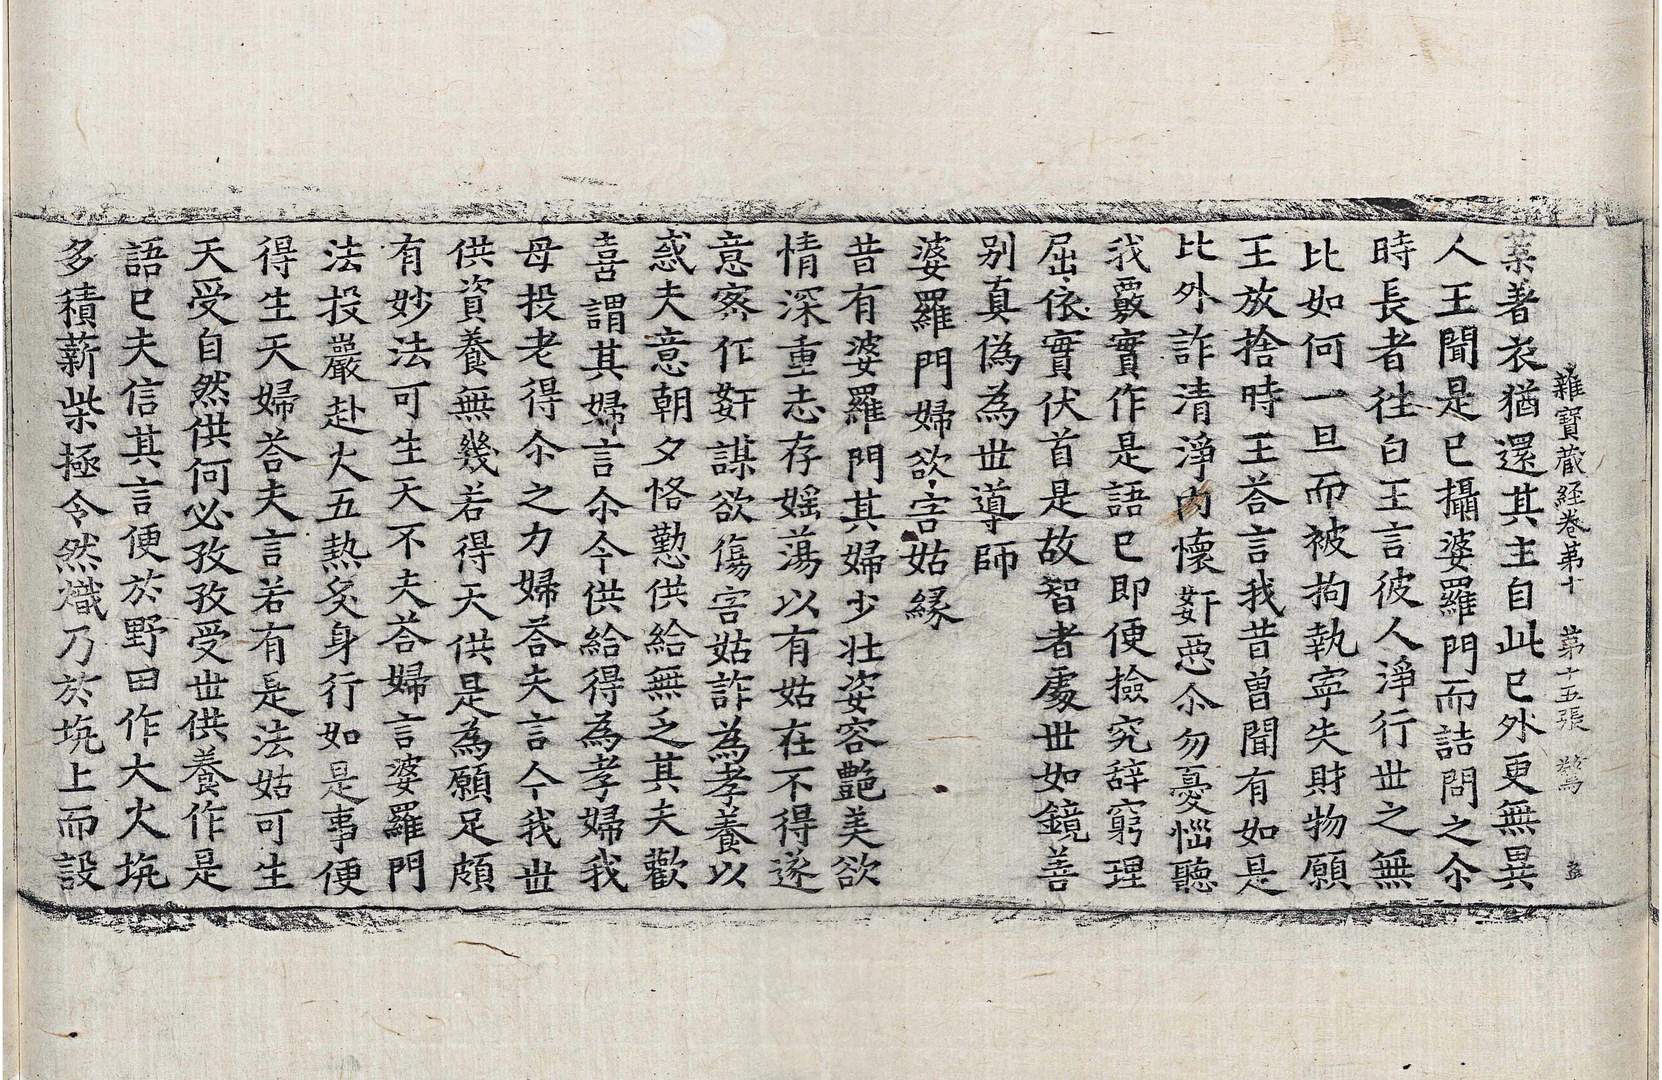 雜寶蔵經卷第十　第十五張　驚
葉著衣猶還其主自此已外更無異
人王聞是已攝婆羅門而詰問之尒
時長者往白王言彼人淨行世之無
比如何一旦而被拘執寧失財物願
王放捨時王荅言我昔曾聞有如是
比外詐清淨内懷姧惡尒勿憂惱聽
我覈實作是語已即便撿究辞窮理
屈依實伏首是故智者處世如鏡善
别真偽為世導師
婆羅門婦欲害姑縁
昔有婆羅門其婦少壯姿容艶美欲
情深重志存婬蕩以有姑在不得遂
意宻作姧謀欲傷害姑詐為孝養以
惑夫意朝夕恪懃供給無乏其夫歡
喜謂其婦言尒今供給得為孝婦我
母投老得尒之力婦荅夫言今我世
供資養無幾若得天供是為願足頗
有妙法可生天不夫荅婦言婆羅門
法投巖赴火五熱炙身行如是事便
得生天婦荅夫言若有是法姑可生
天受自然供何必孜孜受世供養作是
語已夫信其言便於野田作大火坑
多積薪柴極令然熾乃於坑上而設